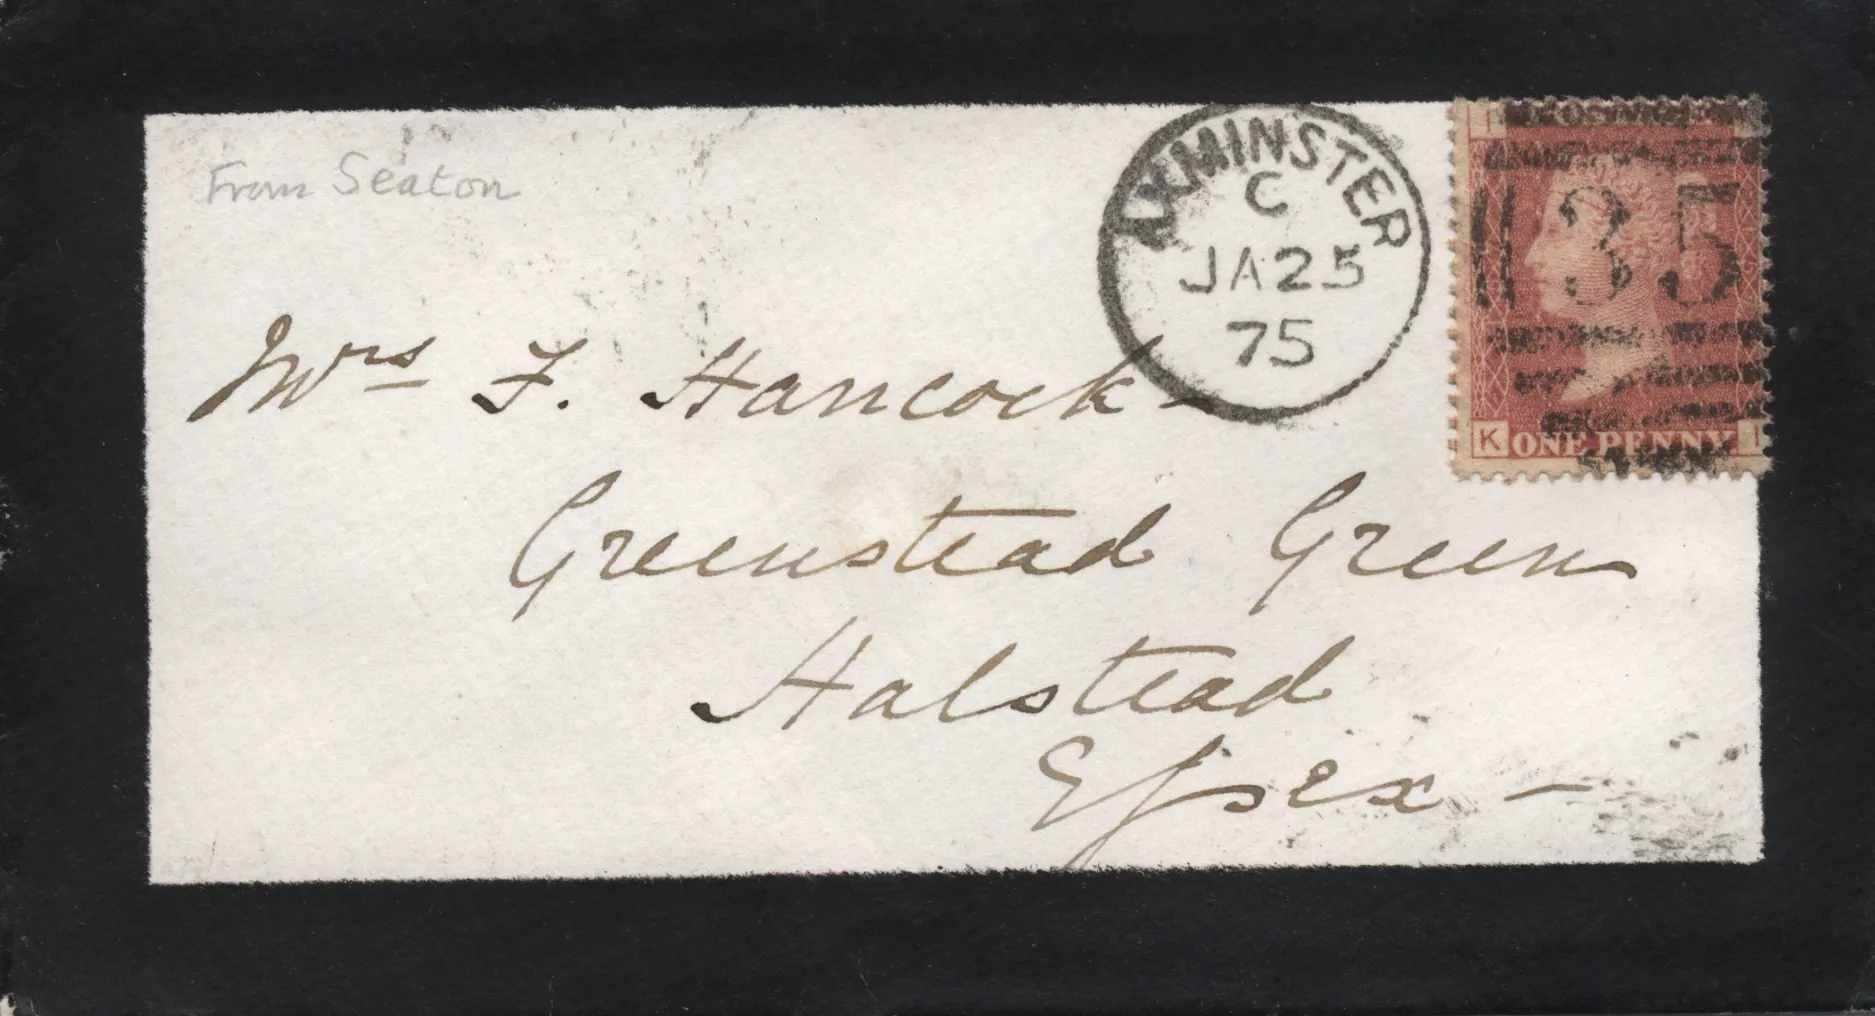 From Seaton
AXMINSTER
C
JA 25
75
I POSTAGE
35
K ONE PENNY I
Mrs F. Hancock -
Greenstead Green
Halstead
Essex -